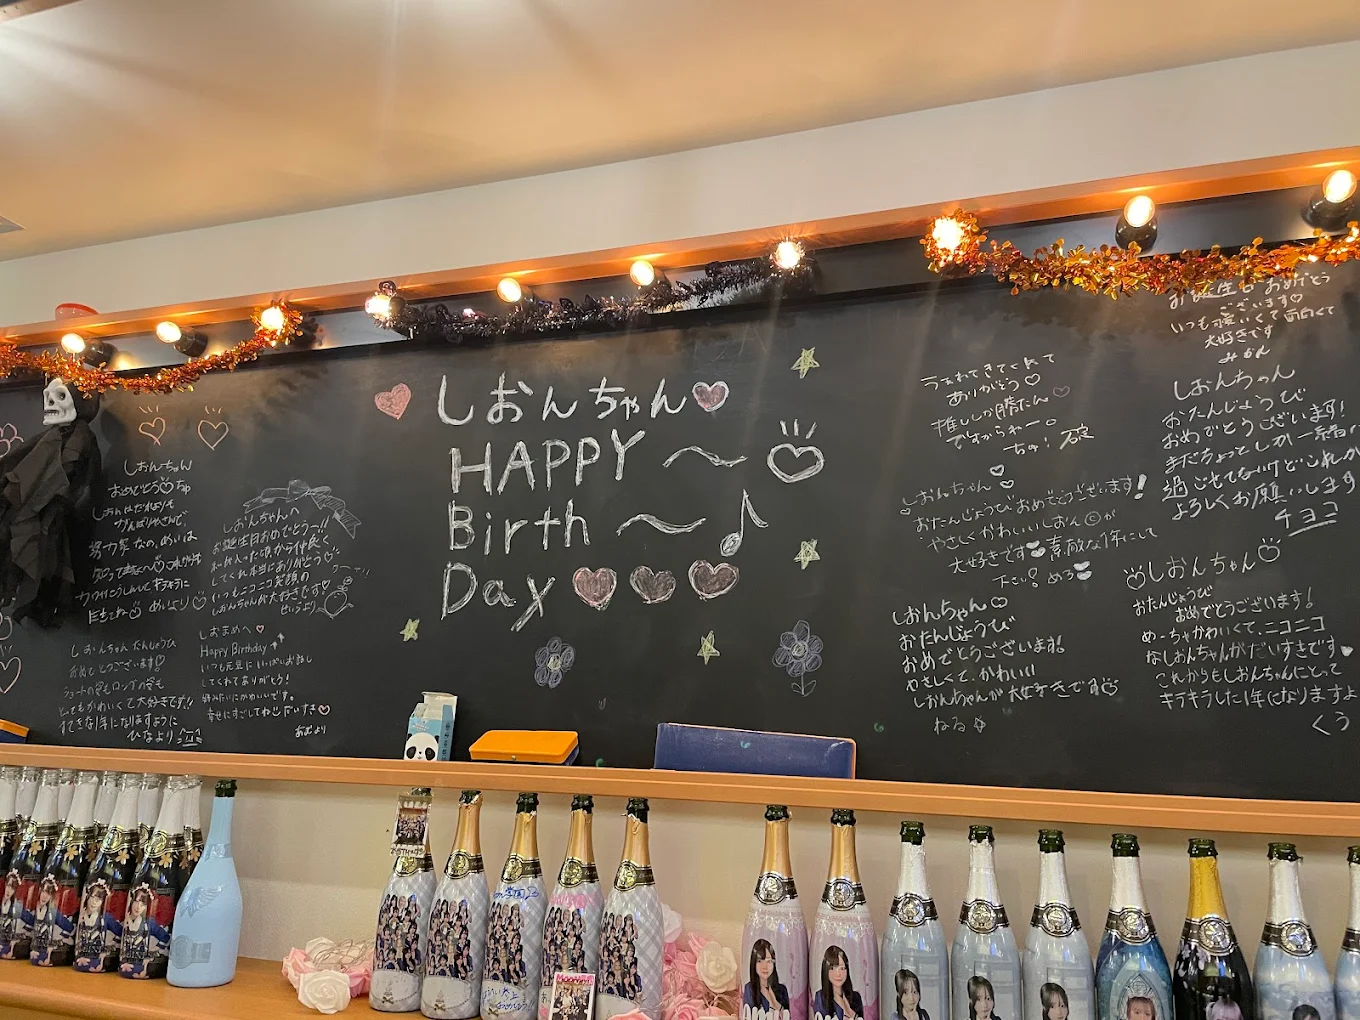 しおんちゃん
HAPPY 〜
Birth 〜♪
Day
しおんちゃん
おめでとう♡ちゅ
努力家なの、めいは
めいより♡
しおんちゃんへ
お誕生日おめでとう〜!!
私が入った頃から仲良く
してくれ本当にありがとう♡
いつもニコニコ笑顔の
しおんちゃんが大好きです!
せいうより
しおんちゃん たんじょうび
おめでとうございます!
ショートの姿もロングの姿も
とってもかわいくて大好きです!!
すてきな1年になりますように
ひなより
しおまめへ♡
Happy Birthday
いつも元気にいっぱいお話し
してくれてありがとう!
幸せにすごしてね♡だいすき♡
あむより
うまれてきてくれて
ありがとう♡
推ししか勝たん♡
ですからねー。
ちゅ!
しおんちゃん♡
おたんじょうびおめでとうございます!
やさしくかわいいしおん©が
大好きです♥素敵な1年にして
下さい! める♥
しおんちゃん♡
おたんじょうび
おめでとうございます!
やさしくて、かわいい
しおんちゃんが大好きです♡
ねる☆
お誕生日おめでとう
ございます♡
いつも優しくて面白くて
大好きです
みかん
しおんちゃん
おたんじょうび
おめでとうございます!
まだちょっとしか一緒に
過ごせてないけどこれか
よろしくお願いします
チョコ
♡しおんちゃん♡
おたんじょうび
おめでとうございます!
めーちゃかわいくて、ニコニコ
なしおんちゃんがだいすきです♥
これからもしおんちゃんにとって
キラキラした1年になりますよ
くう